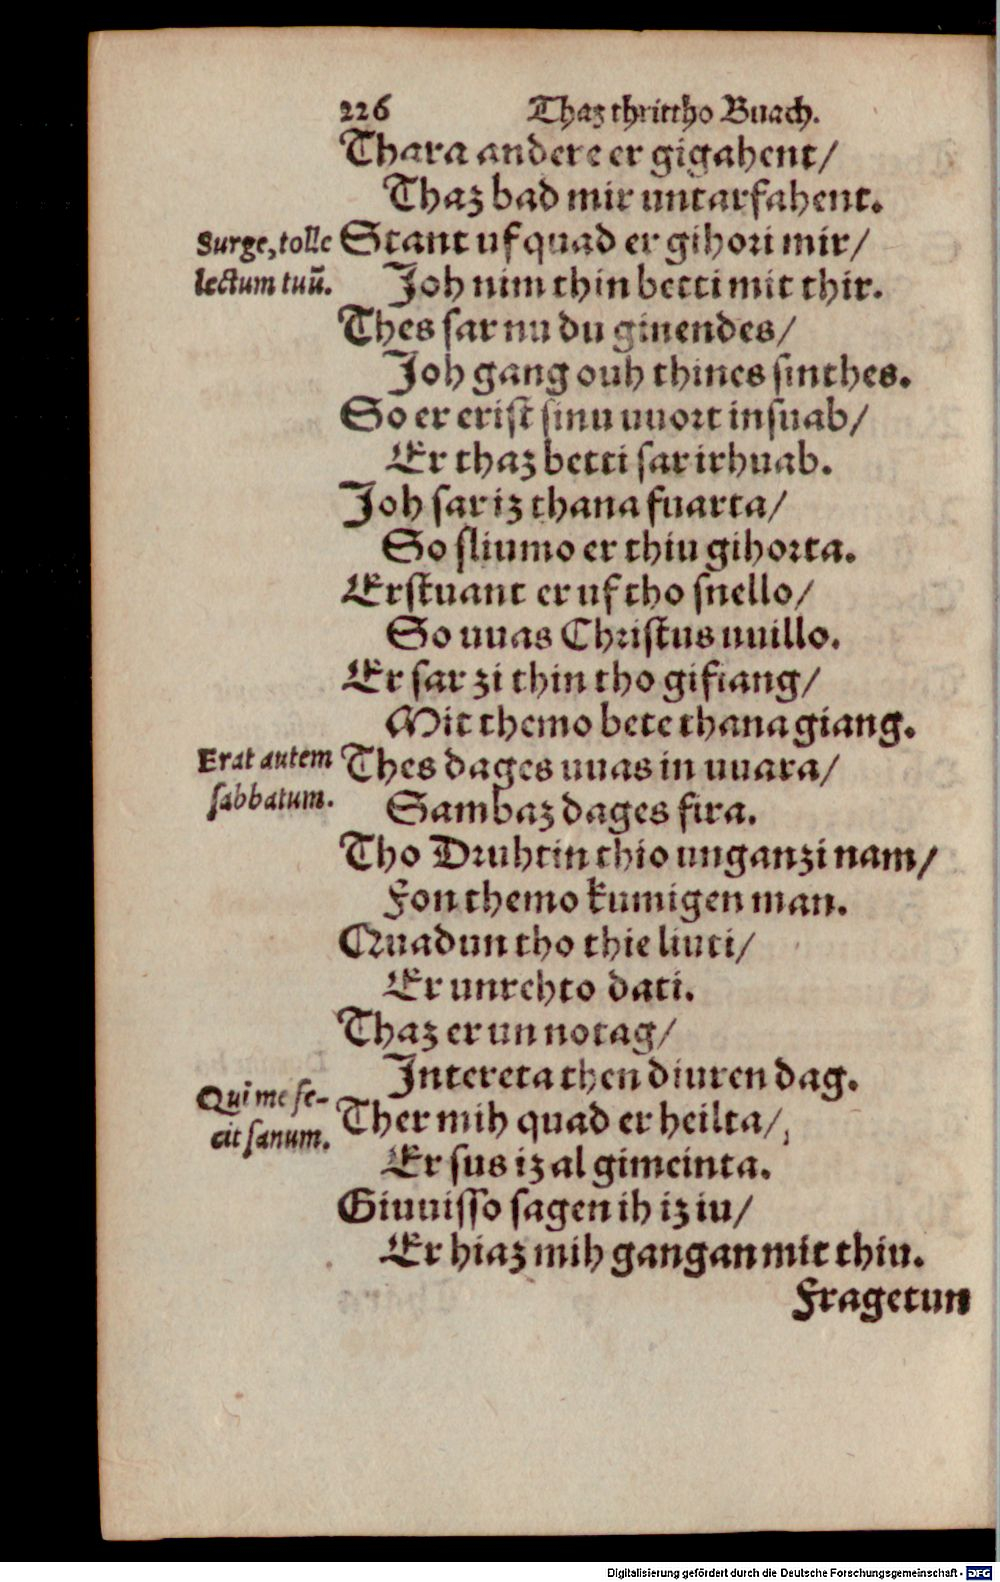 226 Thaz thrittho Buach.
Thara andere er gigahent/
Thaz bad mir untarfahent.
Surge, tolle
lectum tuū.
Stant uf quad er gihori mir/
Joh nim thin betti mit thir.
Thes sar nu du ginendes/
Joh gang ouh thines sinthes.
So er erist sinu uuort insuab/
Er thaz betti sar irhuab.
Joh sar iz thana fuarta/
So sliumo er thiu gihorta.
Erstuant er uf tho snello/
So uuas Christus uuillo.
Er sar zi thin tho gifiang/
Mit themo bete thana giang.
Erat autem
sabbatum.
Thes dages uuas in uuara/
Sambaz dages fira.
Tho Druhtin thio unganzi nam/
Fon themo kumigen man.
Quadun tho thie liuti/
Er unrehto dati.
Thaz er un notag/
Intereta then diuren dag.
Qui me fe-
cit sanum.
Ther mih quad er heilta/
Er sus iz al gimeinta.
Giuuisso sagen ih iz iu/
Er hiaz mih gangan mit thiu.
Fragetun
Digitalisierung gefördert durch die Deutsche Forschungsgemeinschaft - DFG